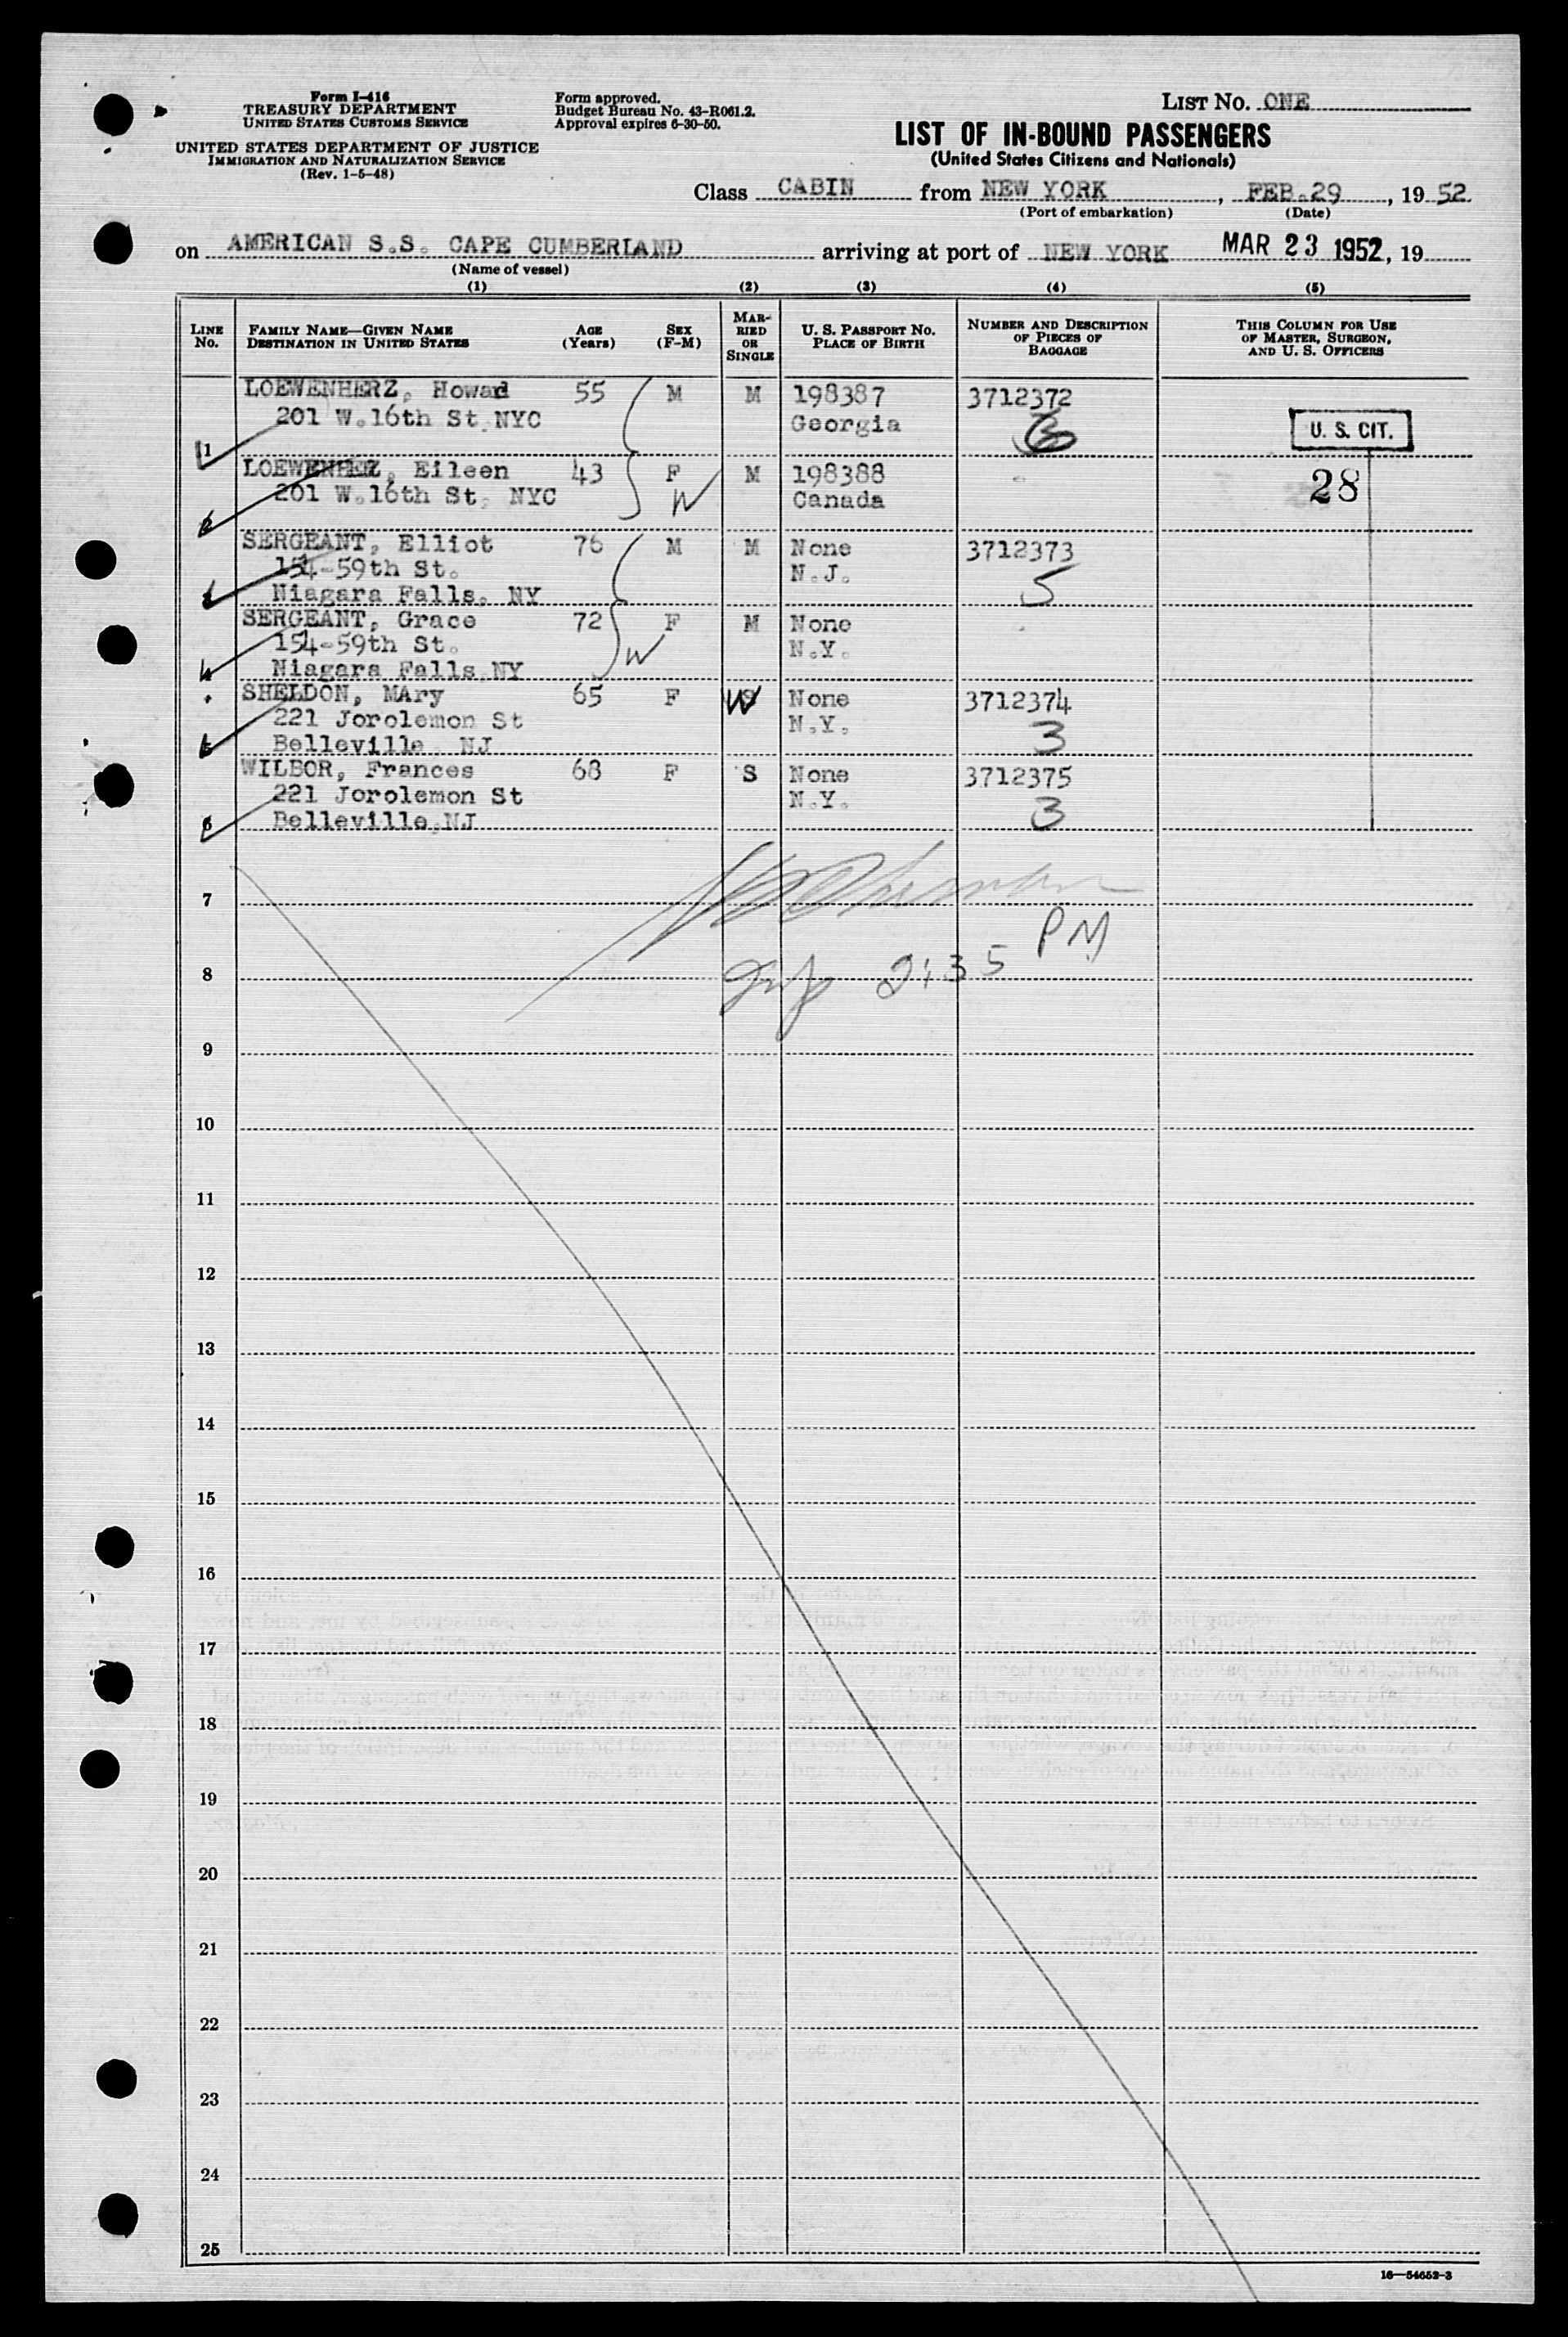 Form I-416
TREASURY DEPARTMENT
UNITED STATES CUSTOMS SERVICE
UNITED STATES DEPARTMENT OF JUSTICE
IMMIGRATION AND NATURALIZATION SERVICE
(Rev. 1-5-48)
Form approved.
Budget Bureau No. 43-R061.2.
Approval expires 6-30-50.
LIST NO. ONE
LIST OF IN-BOUND PASSENGERS
(United States Citizens and Nationals)
Class CABIN from NEW YORK, FEB.29, 19 52
(Port of embarkation) (Date)
on AMERICAN S.S. CAPE CUMBERLAND arriving at port of NEW YORK MAR 23 1952, 19
(Name of vessel)
(1) (2) (3) (4) (5)
LINE NO. FAMILY NAME—GIVEN NAME DESTINATION IN UNITED STATES AGE (Years) SEX (F-M) MARRIED OR SINGLE U. S. PASSPORT NO. PLACE OF BIRTH NUMBER AND DESCRIPTION OF PIECES OF BAGGAGE THIS COLUMN FOR USE OF MASTER, SURGEON, AND U. S. OFFICERS
LOEWENHERZ, Howad 55 M M 198387 3712372
201 W.16th St.NYC Georgia U. S. CIT.
1
LOEWENHERZ, Eileen 43 F M 198388
201 W.16th St. NYC W Canada 28
2
SERGEANT, Elliot 76 M M None 3712373
154-59th St. N.J. 5
3 Niagara Falls, NY
SERGEANT, Grace 72 F M None
154-59th St. W N.Y.
4 Niagara Falls,NY
SHELDON, MAry 65 F W None 3712374
221 Jorolemon St N.Y. 3
5 Belleville, NJ
WILBOR, Frances 68 F S None 3712375
221 Jorolemon St N.Y. 3
6 Belleville,NJ
7
PM
8 2:35
9
10
11
12
13
14
15
16
17
18
19
20
21
22
23
24
25
16—54652-3